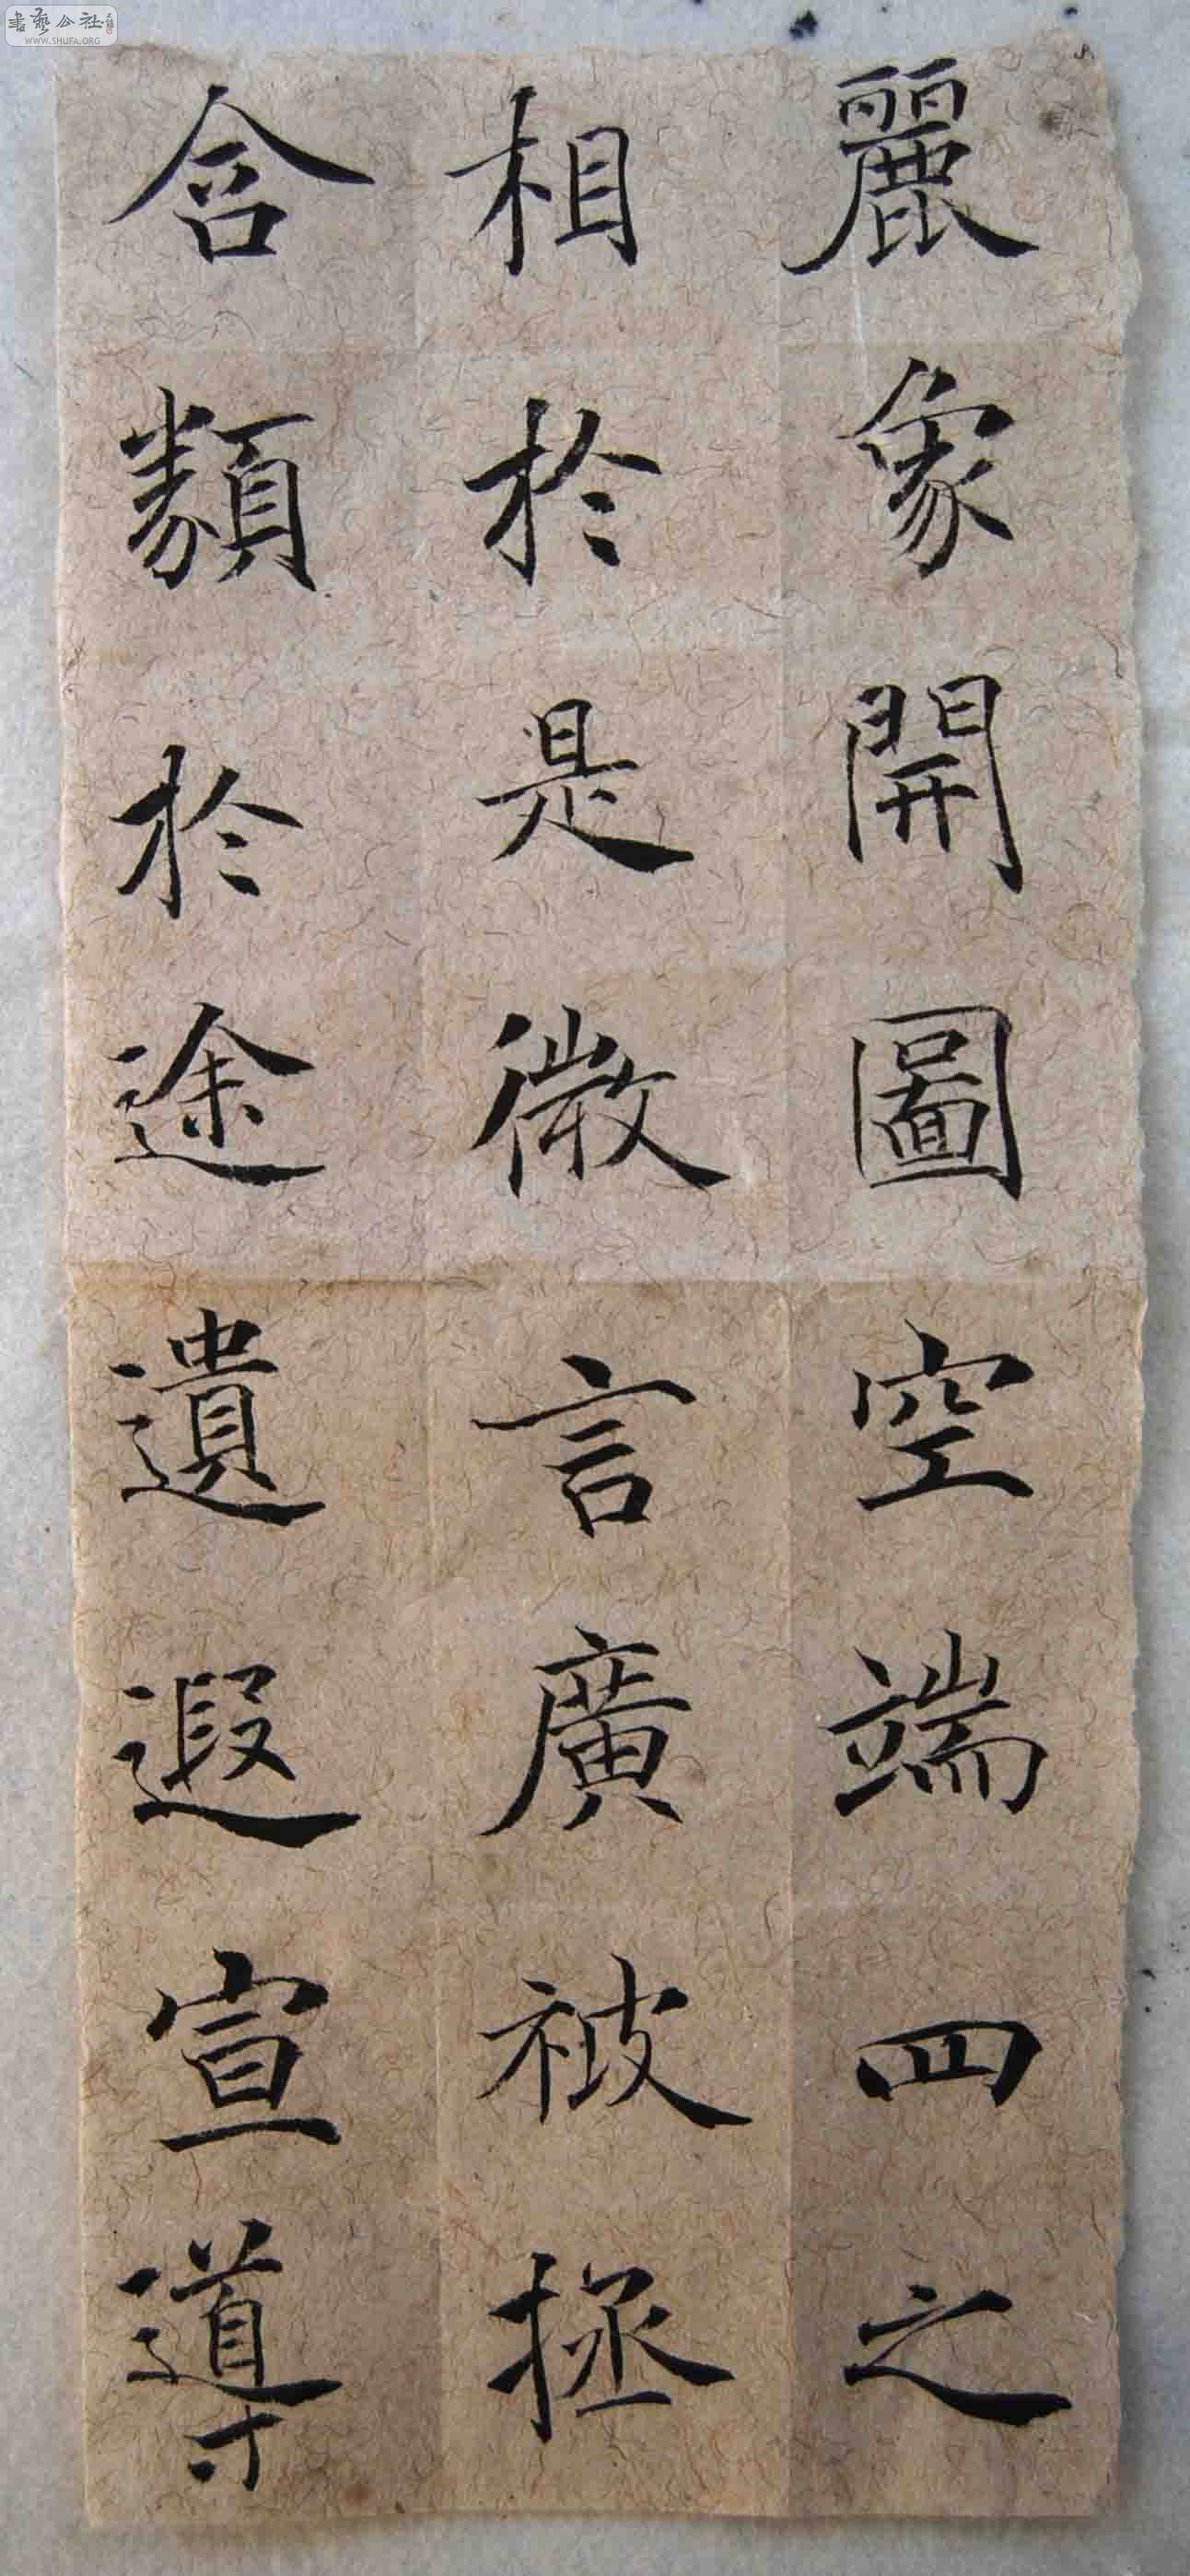 麗象開圖空端四之
相於是微言廣被拯
含類於途遺遐宣導
書藝公社
WWW.SHUFA.ORG